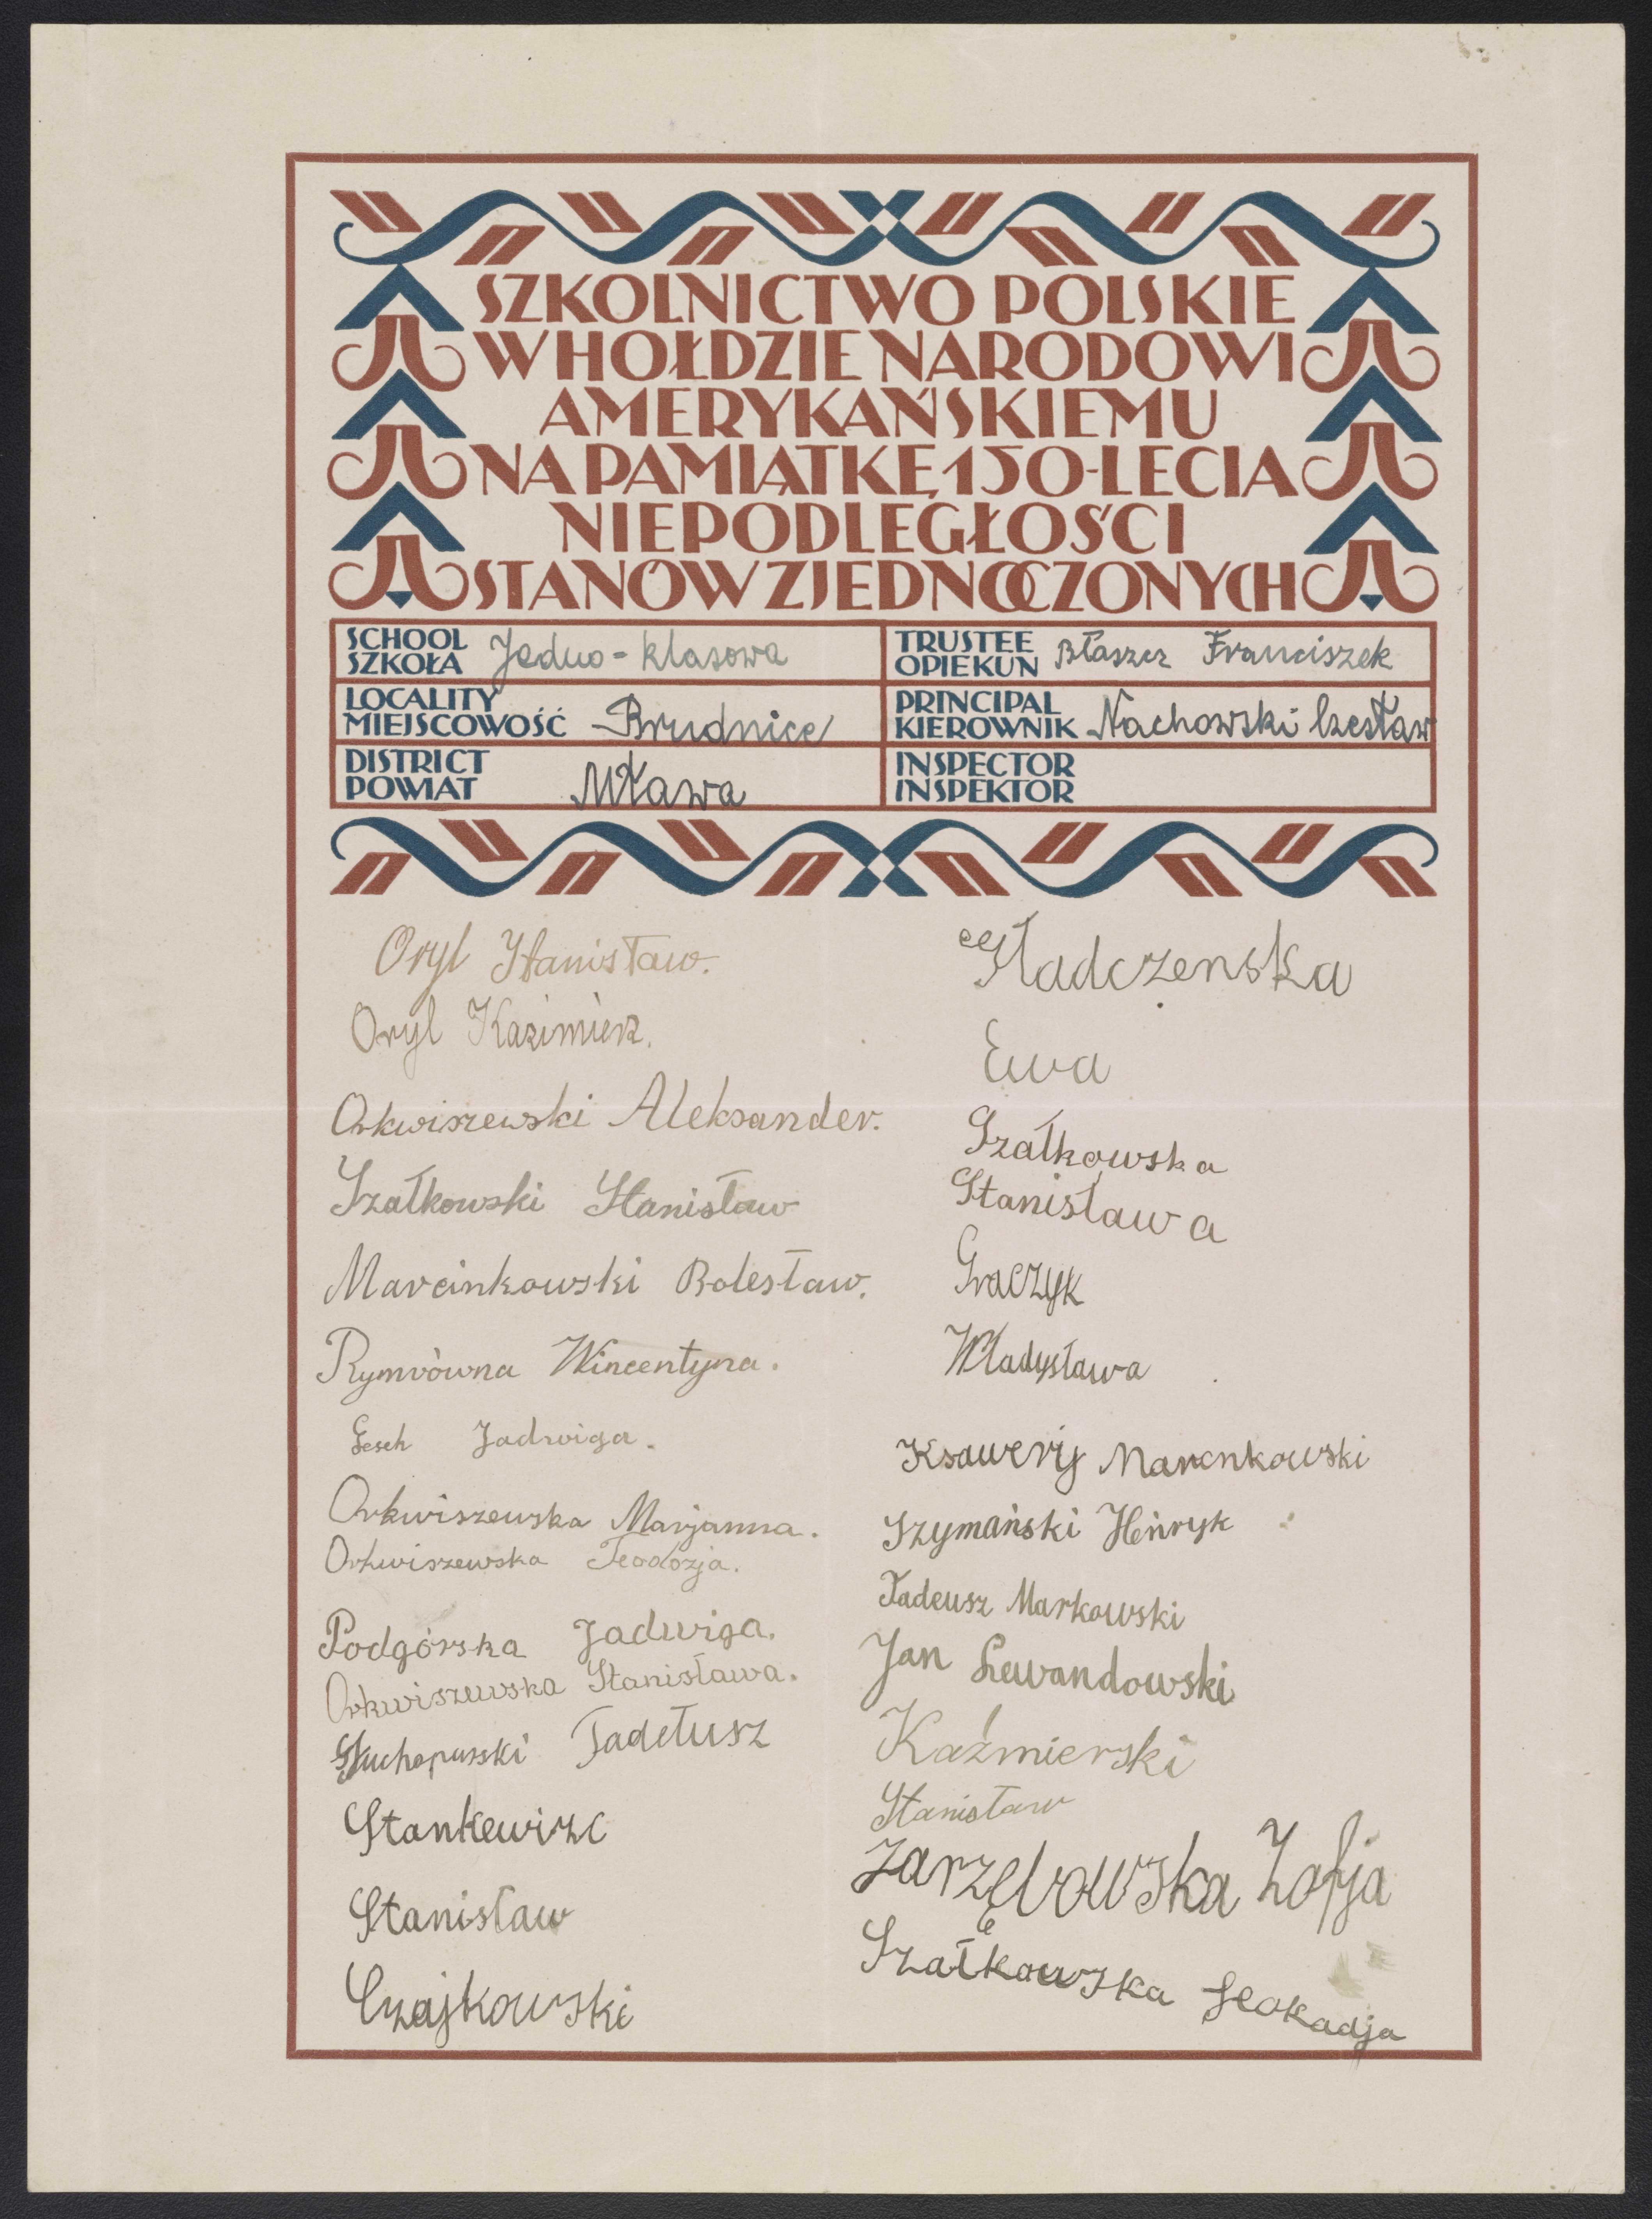 SZKOLNICTWO POLSKIE
W HOŁDZIE NARODOWI
AMERYKAŃSKIEMU
NA PAMIĄTKĘ 150-LECIA
NIEPODLEGŁOŚCI
STANÓW ZJEDNOCZONYCH
SCHOOL
SZKOŁA Jedno-klasowa
TRUSTEE
OPIEKUN Błaszcz Franciszek
LOCALITY
MIEJSCOWOŚĆ Brudnice
PRINCIPAL
KIEROWNIK Nachowski Czesław
DISTRICT
POWIAT Mława
INSPECTOR
INSPEKTOR
Oryl Stanisław.
Oryl Kazimierz.
Orkwiszewski Aleksander.
Szałkowski Stanisław
Marcinkowski Bolesław.
Rymrówna Wincentyna.
Jadwiga.
Orkwiszewska Marjanna.
Orkwiszewska Teodozja.
Podgórska Jadwiga.
Orkwiszewska Stanisława.
Tadełusz
Stankewizc
Stanisław
Czajkowski
Gładczenska
Ewa
Szałkowska
Stanisława
Graczyk
Władysława
Ksawery Marcnkowski
Szymański Henryk
Tadeusz Markowski
Jan Lewandowski
Kaźmierski
Stanisław
Zarzębowska Zofja
Szałkowska Leokadja